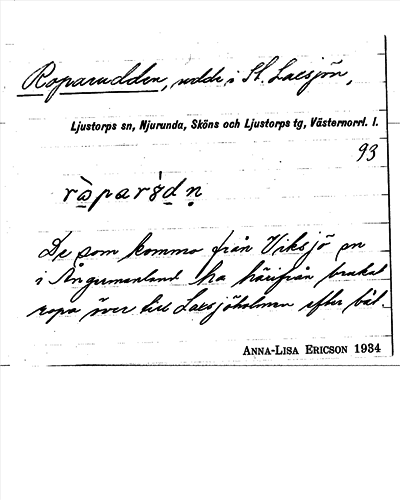 Roparudden, udde i St. Laxsjön,
Ljustorps sn, Njurunda, Sköns och Ljustorps tg, Västernorrl. l.
93
rò̱parɤ́d̲ṇ
De som kommo från Viksjö sn
i Ångermanland ha härifrån brukat
ropa över till Laxsjöholmen efter båt.
ANNA-LISA ERICSON 1934